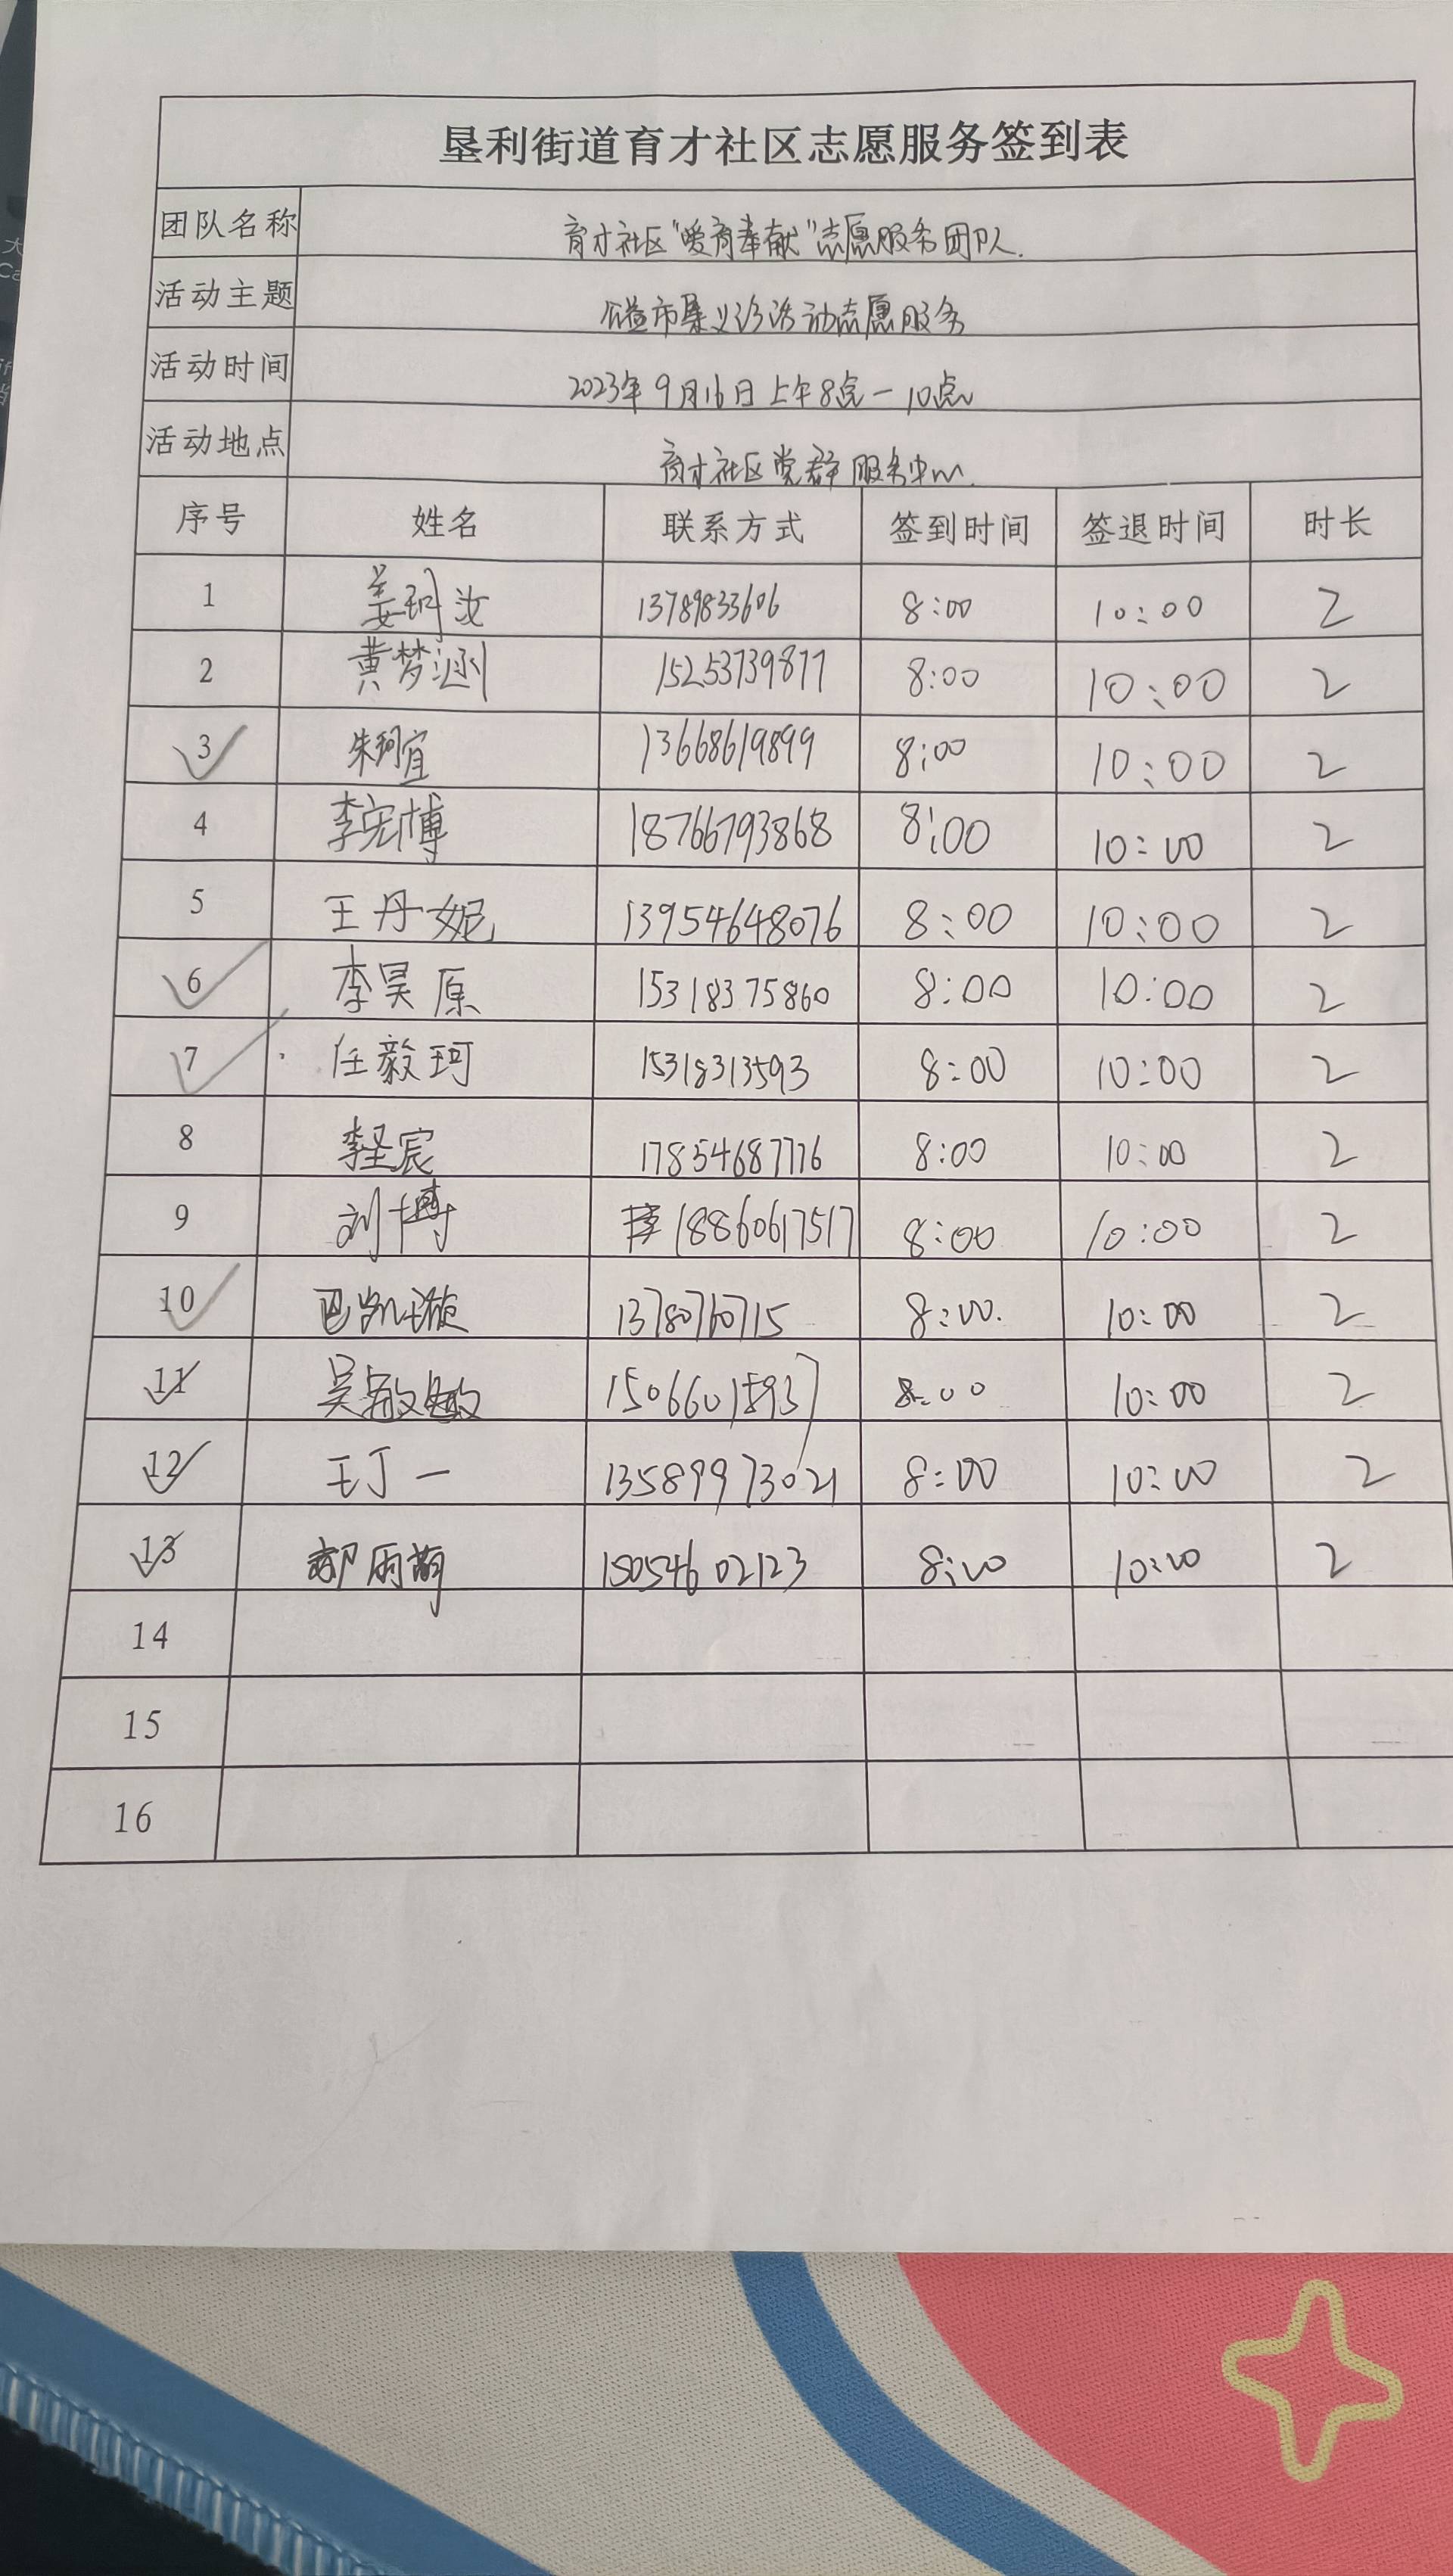 垦利街道育才社区志愿服务签到表
团队名称 育才社区“爱育奉献”志愿服务团队.
活动主题 公益市集义诊活动志愿服务
活动时间 2023年9月16日上午8点一10点
活动地点 育才社区党群服务中心.
序号 姓名 联系方式 签到时间 签退时间 时长
1 姜珂汝 13789833606 8:00 10:00 2
2 黄梦涵 15253739877 8:00 10:00 2
3 朱珂宜 13668619899 8:00 10:00 2
4 李宏博 18766793868 8:00 10:00 2
5 王丹妮 13954648076 8:00 10:00 2
6 李昊原 15318375860 8:00 10:00 2
7 任毅珂 15318313593 8:00 10:00 2
8 李圣宸 17854687776 8:00 10:00 2
9 刘博 18860617517 8:00 10:00 2
10 巴凯璇 13780760715 8:00. 10:00 2
11 吴敏敏 15066015937 8:00 10:00 2
12 王丁一 13589973021 8:00 10:00 2
13 郝雨萌 15054602123 8:00 10:00 2
14
15
16